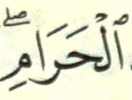 ٱلْحَرَامِۖ